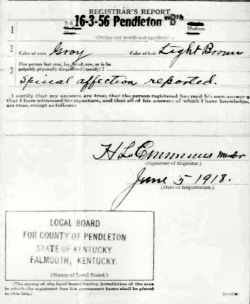 REGISTRAR'S REPORT
16-3-56 Pendleton
1
2 Color of eyes Gray Color of hair Light Brown
3 Has person lost arm, leg, hand, eye, or is he
palpably physically disqualified (specify)?
Spinal affection reported.
I certify that my answers are true; that the person registered has read his own answers;
that I have witnessed his signature, and that all of his answers of which I have knowledge
are true, except as follows:
(Signature of Registrar.)
June 5 1918.
(Date of Registration.)
LOCAL BOARD
FOR COUNTY OF PENDLETON
STATE OF KENTUCKY
FALMOUTH, KENTUCKY.
(Stamp of Local Board.)
(The stamp of the Local Board having jurisdiction of the area
in which the registrant has his permanent home shall be placed
in this box.)